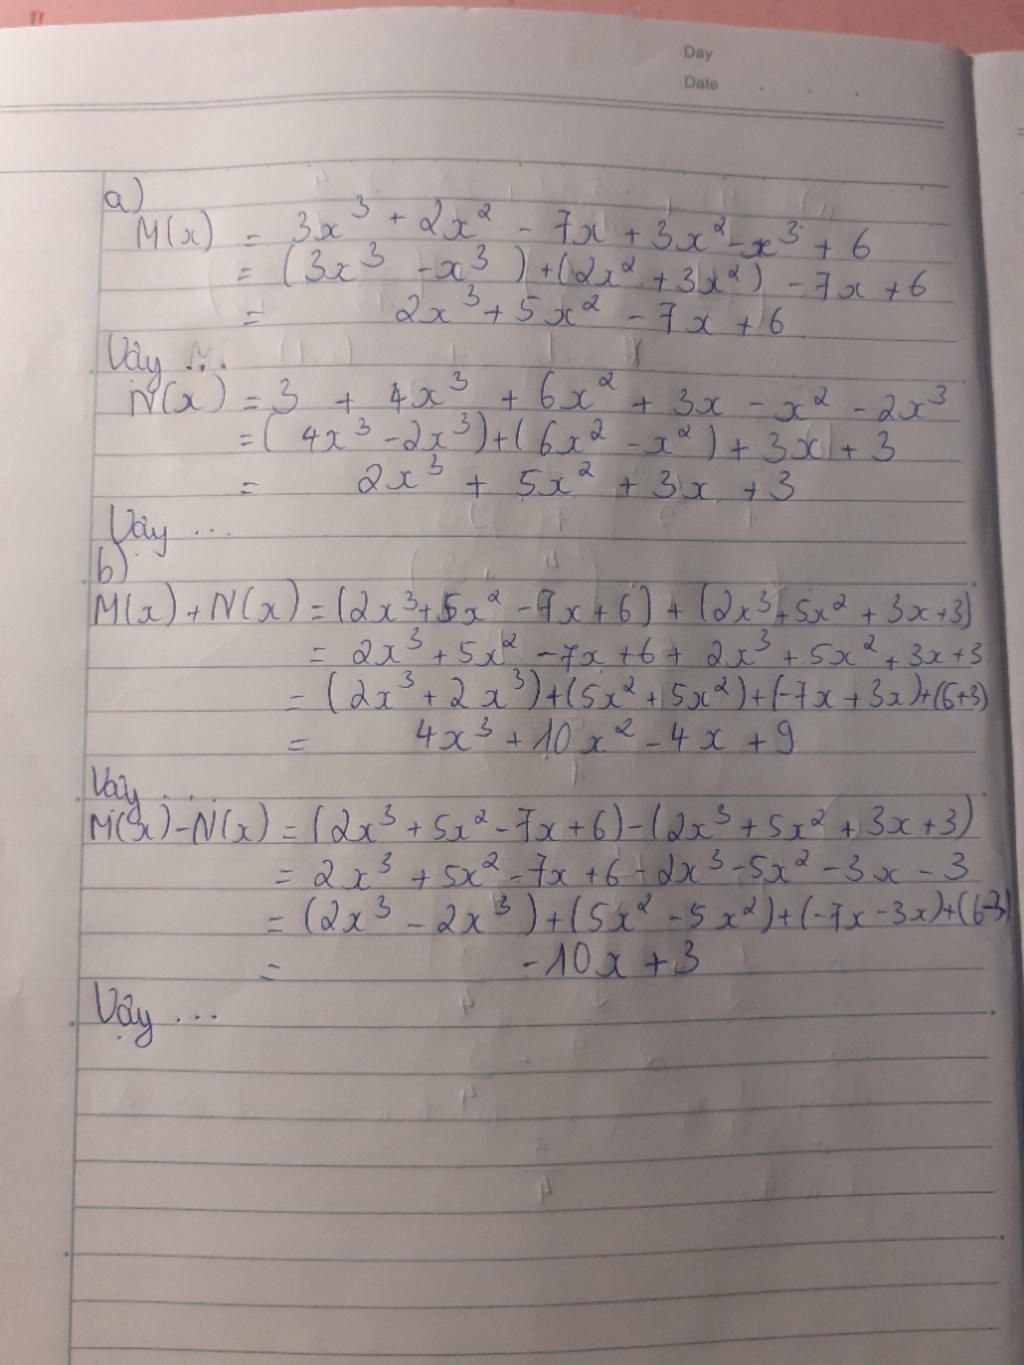 Day
Date . . .
a)
M(x) = 3x³ + 2x² - 7x + 3x² - x³ + 6
= (3x³ - x³) + (2x² + 3x²) - 7x + 6
= 2x³ + 5x² - 7x + 6
Vậy ...
N(x) = 3 + 4x³ + 6x² + 3x - x² - 2x³
= (4x³ - 2x³) + (6x² - x²) + 3x + 3
= 2x³ + 5x² + 3x + 3
Vậy ...
b)
M(x) + N(x) = (2x³ + 5x² - 7x + 6) + (2x³ + 5x² + 3x + 3)
= 2x³ + 5x² - 7x + 6 + 2x³ + 5x² + 3x + 3
= (2x³ + 2x³) + (5x² + 5x²) + (-7x + 3x) + (6+3)
= 4x³ + 10x² - 4x + 9
Vậy ...
M(x) - N(x) = (2x³ + 5x² - 7x + 6) - (2x³ + 5x² + 3x + 3)
= 2x³ + 5x² - 7x + 6 - 2x³ - 5x² - 3x - 3
= (2x³ - 2x³) + (5x² - 5x²) + (-7x - 3x) + (6-3)
= -10x + 3
Vậy ...